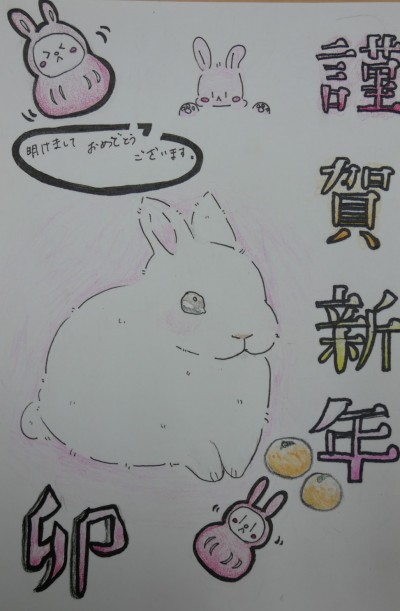 謹賀新年
明けまして おめでとう
ございます。
卯